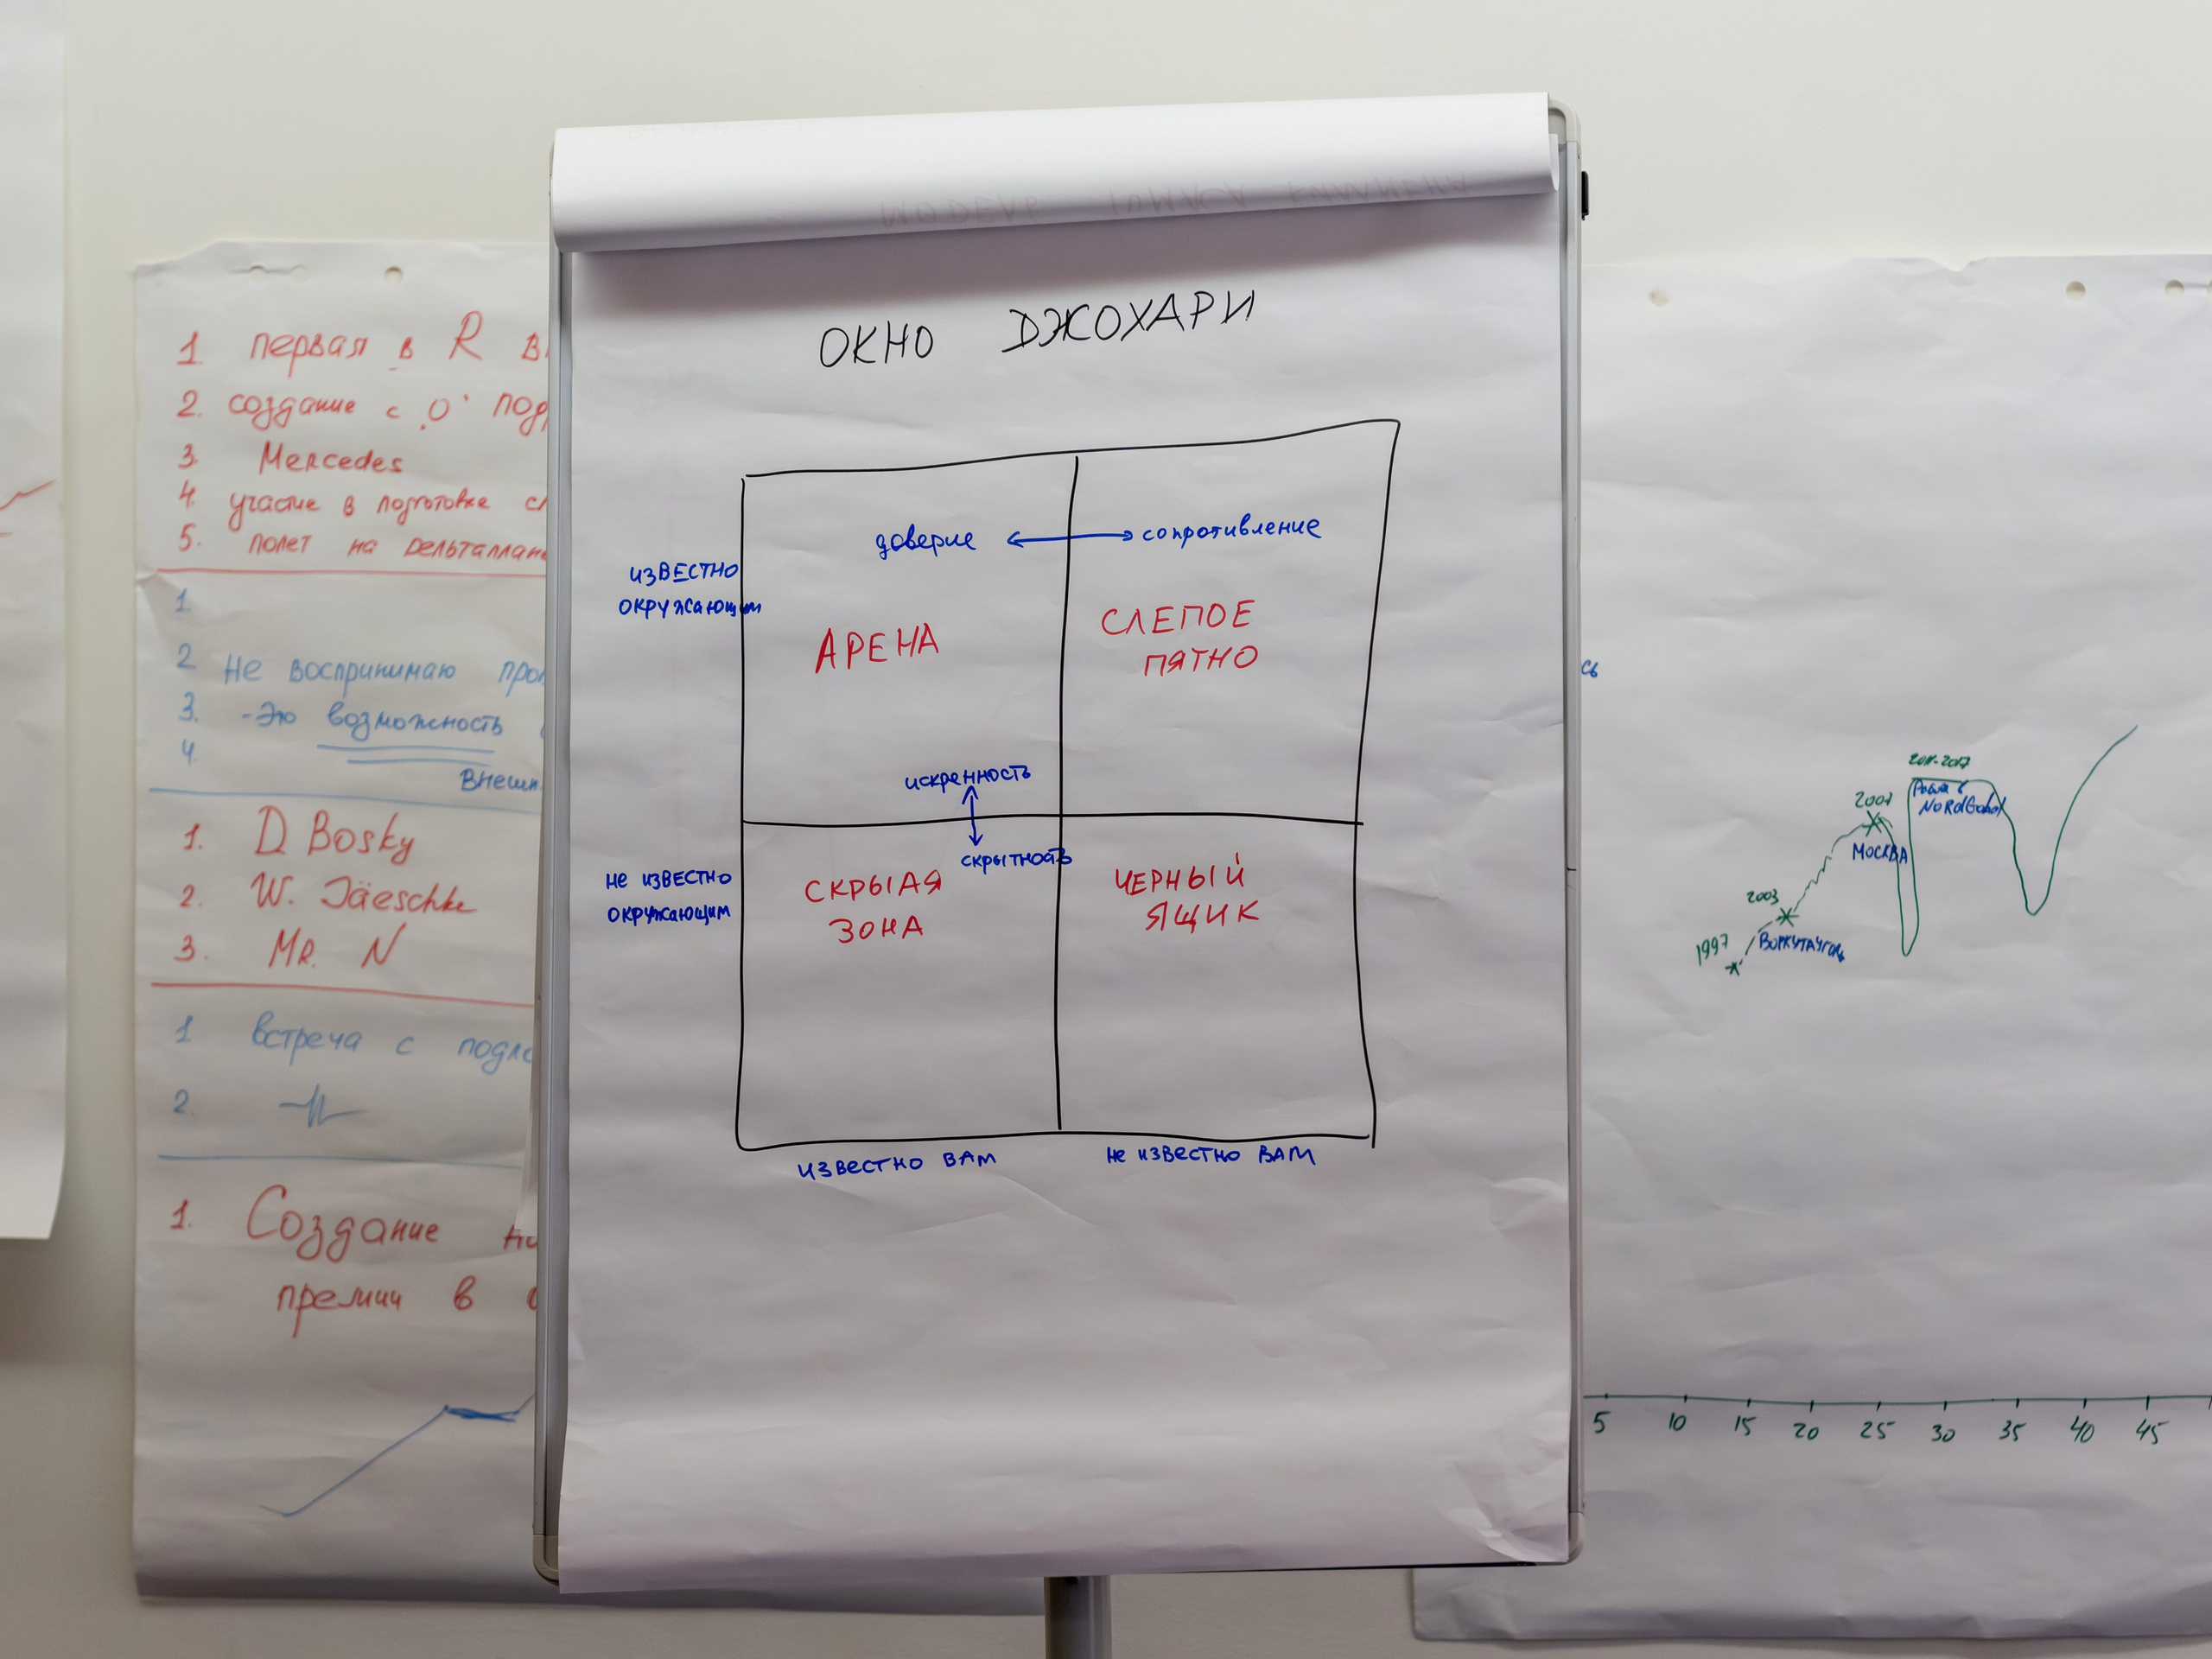 1. первая в R
2. создание с "0"
3. Mercedes
4. участие в подготовке
5. полет на
1.
2 Не воспринимаю
3. - Это возможность
4.
1. D Bosky
2. W. Jäeschke
3. MR. N
1 встреча с
2.
1. Создание
премии в
ОКНО ДЖОХАРИ
доверие сопротивление
ИЗВЕСТНО
ОКРУЖАЮЩИМ
АРЕНА
СЛЕПОЕ
ПЯТНО
искренность
скрытность
НЕ ИЗВЕСТНО
ОКРУЖАЮЩИМ
СКРЫАЯ
ЗОНА
ЧЕРНЫЙ
ЯЩИК
ИЗВЕСТНО ВАМ
НЕ ИЗВЕСТНО ВАМ
сь
2011-2017
NORDGold
2007
МОСКВА
2003
1997
5 10 15 20 25 30 35 40 45